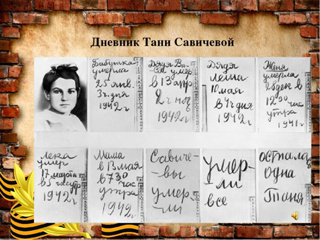 Дневник Тани Савичевой
Бабушка
умерла
25 янв.
3ч. дня
1942 г
Дядя Ва-
ся умер
в 13 апр
2 ч ноч
1942 г
Дядя
Леша
10 мая
в 4ч дня
1942 г
Женя
умерла
28 дек в
12.30
час
утра
1941 г
Лека
умер
17 марта
1942 г
Мама
в 13 мая
в 7.30
час
утра
1942
Савиче-
вы
умер-
ли
умер-
ли
все
осталась
одна
Таня